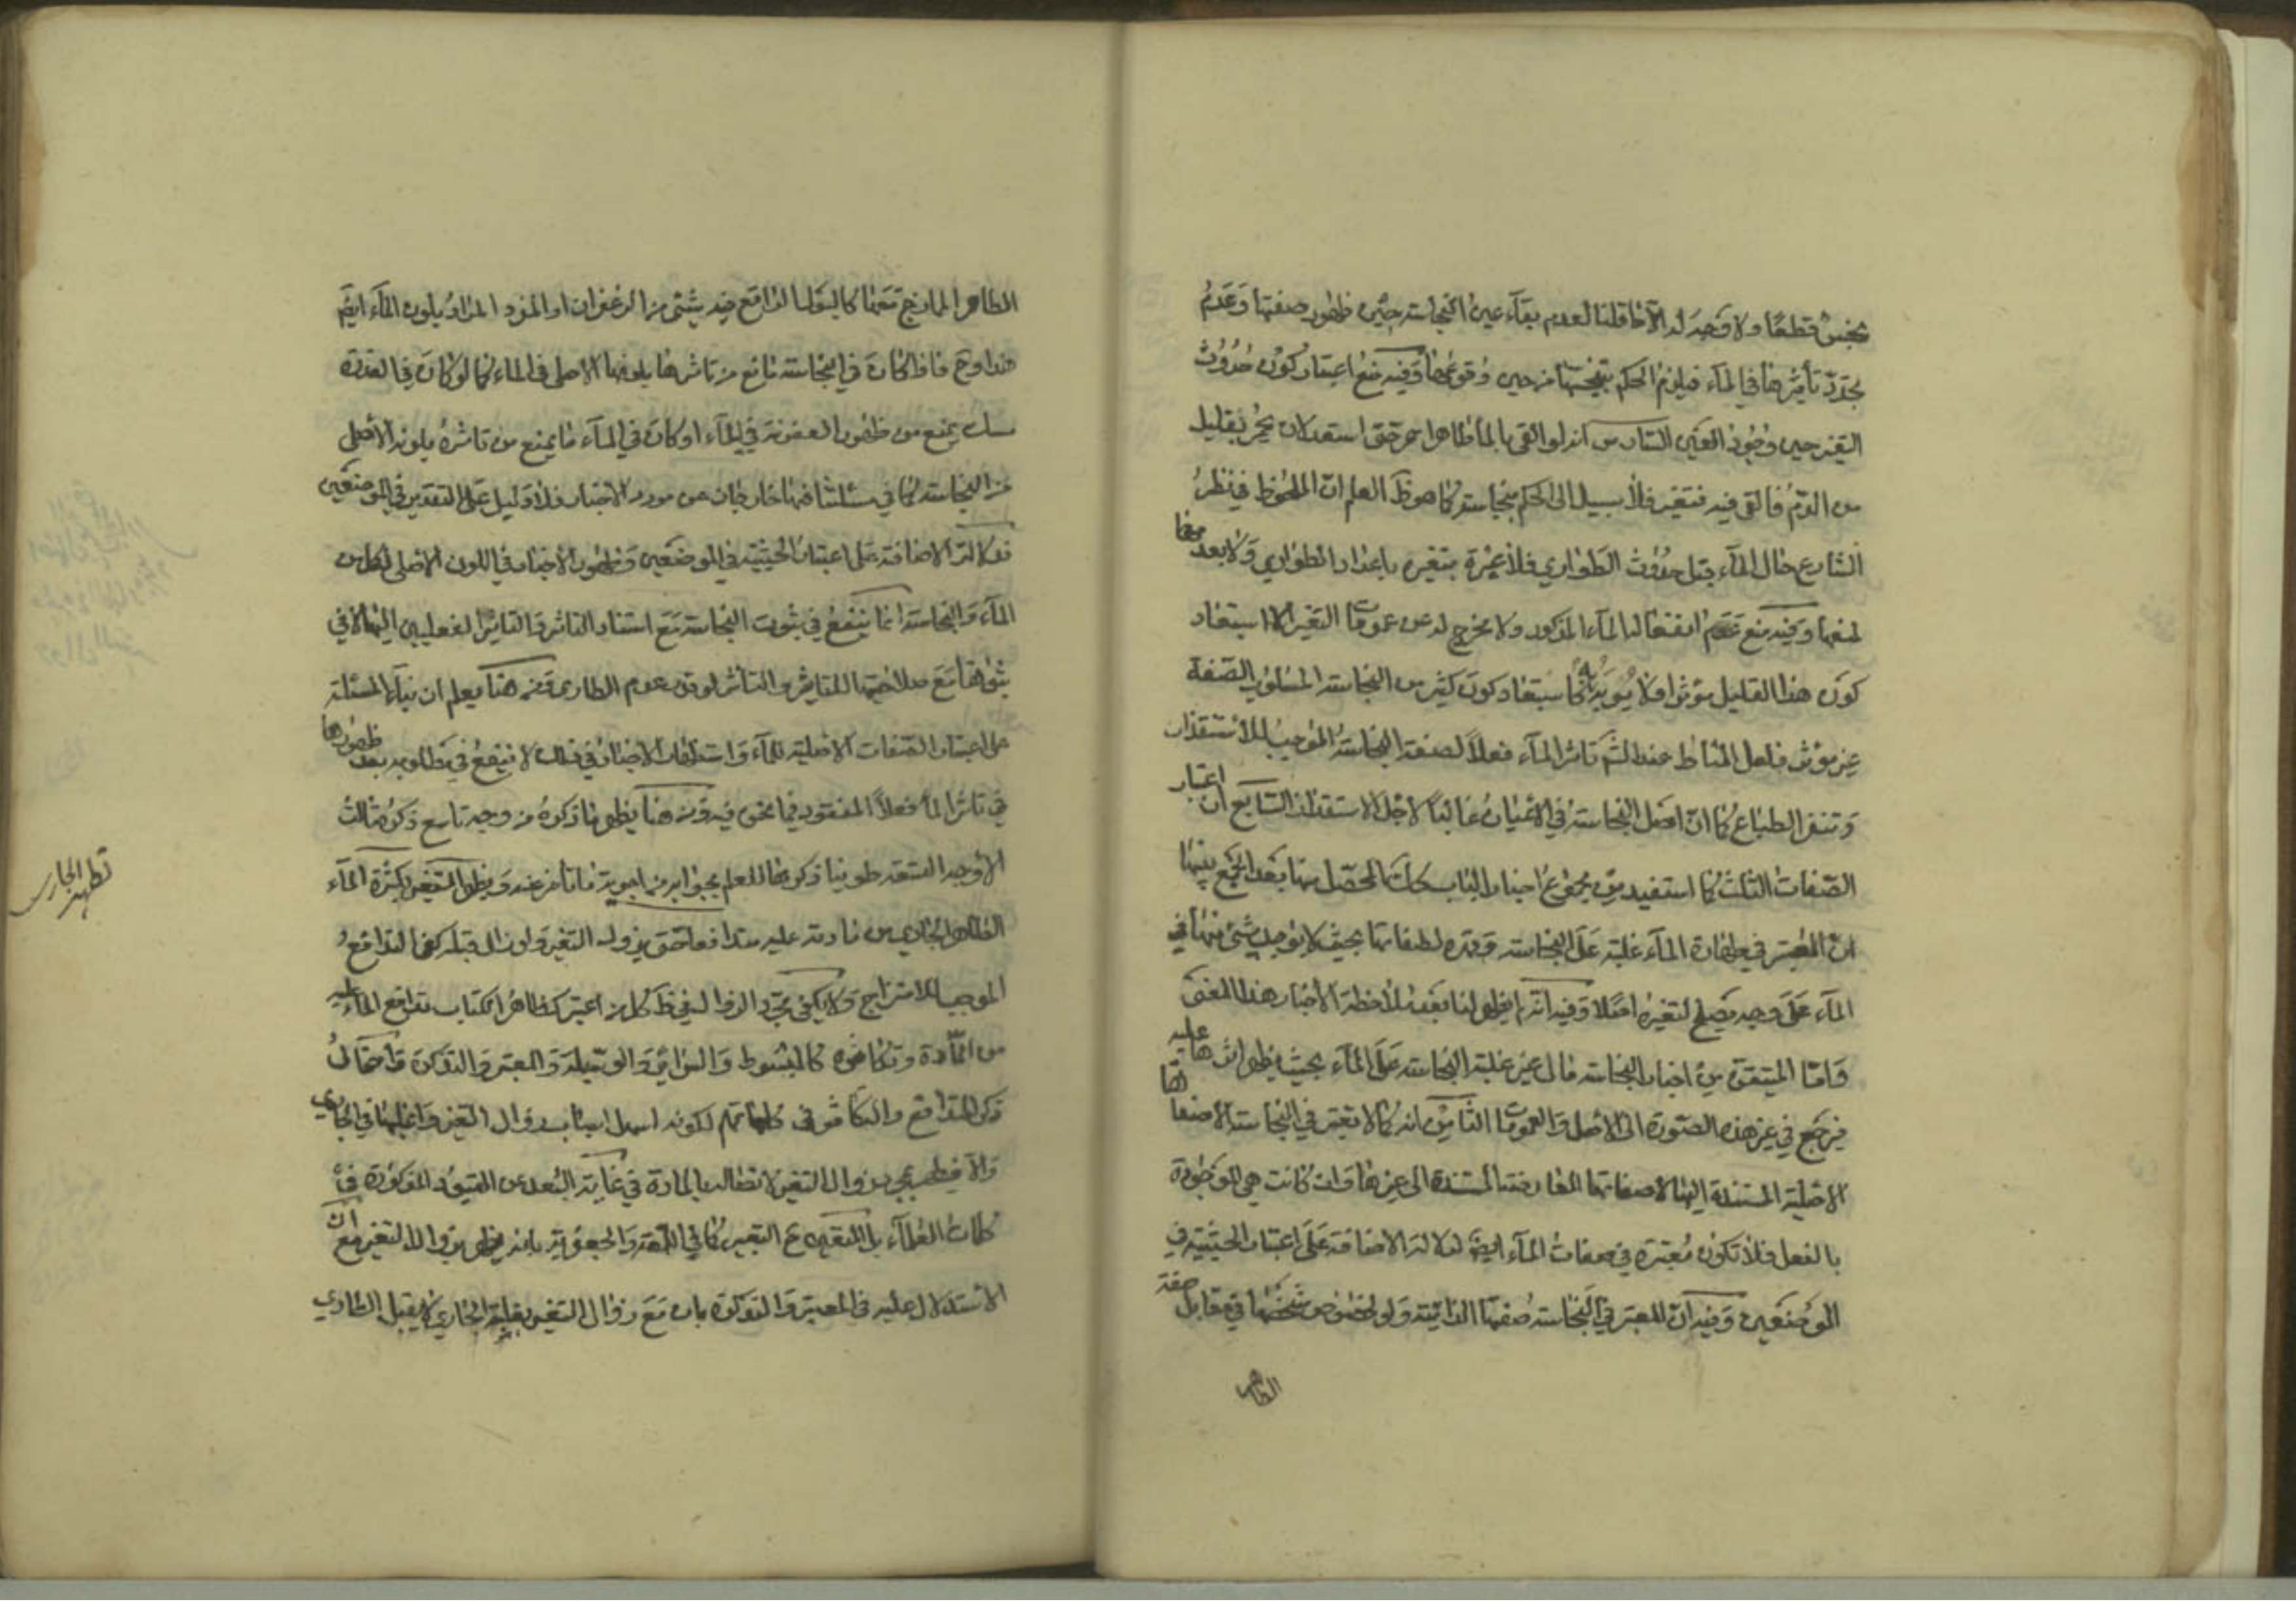 نجس قطعًا ولا وجه له الا ما قلنا لعدم بقاء عين النجاسة حين ظهور صفتها وعدم
تجدد تأثيرها في الماء فيلزم الحكم بتنجسها من حين وقوعها وفيه منع اعتبار كون حدوث
التغير حين وجود العين السادس انه لو القى بالماء طاهر احمر حتى استعد لان يحمر بقليل
من الدم فالقى فيه فتغير فلا سبيل الى الحكم بنجاسته كما هو ظ العلم ان الملحوظ في نظر
الشارع حال الماء قبل حدوث الطواري فلا عبرة بتغيره باعداد الطواري ولا بعدمه
لمنعها وفيه منع عدم انفعال الماء المذكور ولا مخرج له عن عمومات التغير الا استبعاد
كون هذا القليل مؤثرا ولا يؤبه به كاستبعاد كون كثير من النجاسة المسلوب الصفة
غير مؤثر فلعل المناط عند الشم تاثر الماء فعلاً لصفة النجاسة الموجب للاستقذار
وتنفر الطباع كما ان اصل النجاسة في الاعيان غالبًا لاجل الاستقذار السابع ان اعتبار
الصفات الثلث كما استفيد من مجموع اخبار الباب كان المحصل منها بعد الجمع بينها
ان المعتبر في طهارة الماء غلبته على النجاسة وقهره لصفاتها بحيث لا يوجد شئ منها في
الماء على وجه يصلح لتغيره اصلا وفيه انه لم يظهر لنا بعد ملاحظة الاخبار هذا المعنى
وامّا المتيقن من اخبار النجاسة فالى غير غلبة النجاسة على الماء بحيث يظهر اثرها عليه
فيرجع في غير هذه الصورة الى الاصل والعمومات الثامن انه كما لا يعتبر في النجاسة الا صفاتها
الاصلية المستندة اليها لا صفاتها العارضة المستندة الى غيرها وان كانت هي الموجودة
بالفعل فلا تكون معتبرة في صفات الماء ايضا لدلالة الاضافة على اعتبار الحيثية في
الموضعين وفيه ان المعتبر في النجاسة صفتها الذاتية ولو لخصوص شخصها في مقابل صفة
الطاهر
الطاهر الممازج معها كالبول الواقع فيه شئ من الزعفران او المفرد المراد بلون الماء ايضا
هذا وح فاذا كان في النجاسة مانع من تاثرها بلونها الاصلى في الماء كما لو كان في العذرة
مسك يمنع من ظهور العفونة في الماء او كان في الماء ما يمنع من تاثره بلونه الاصلى
من النجاسة كما في مسئلتنا فهما خارجان عن مورد الاخبار فلا دليل على التقدير في الموضعين
فدلالة الاضافة على اعتبار الحيثية في الموضعين وظهور الاخبار في اللون الاصلى لكل من
الماء والنجاسة انما ينفع في ثبوت النجاسة مع استناد التاثر والتاثير الفعليين اليهما لا في
ثبوتها مع صلاحيتها للتاثير والتاثر لو فرض عدم الطاري ومن هنا يعلم ان بناء المسئلة
على اعتبار الصفات الاصلية للماء واستظهار الاخبار في ذلك لا ينفع في مطلوبه بعد ظهورها
في تاثر الماء فعلاً المفقود فيما نحن فيه ومن هنا يظهر ما ذكره من وجه تاسع ذكره ثالث
الاوجه المتقدمة طوينا ذكرها للعلم بجوابه من اجوبة ما تاخر عنه ويطهر المتغير بكثرة الماء
الطاهر الجاري من مادته عليه متدافعا حتى يزول التغير ولو زال قبله كفى التدافع
الموجب للامتزاج ولا يكفي مجرد الزوال في ظ كل من اعتبر كظاهر الكتاب تدافع الماء عليه
من المادة وتكاثره كالمبسوط والسرائر والوسيلة والمعتبر والتذكرة واحتمال
ذكر التدافع والتكاثر في كلماتهم لكونه اسهل اسباب زوال التغير واغلبها في الجاري
والا فيطهر بمجرد زوال التغير لاتصاله بالمادة في غاية البعد عن القيود المذكورة في
كلمات العلماء بل التعبير كما في اللمعة والجعفرية بانه يطهر بزوال التغير مع ان
الاستدلال عليه في المعتبر والتذكرة بان مع زوال التغير بغلبة الجاري لا يقبل الطاري
تطهير الجاري